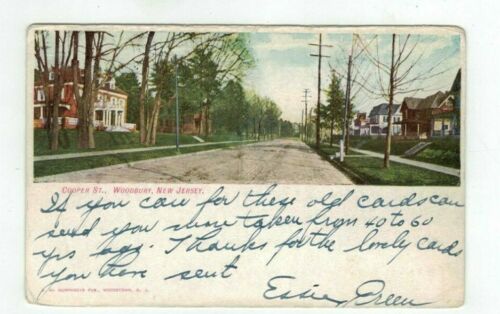 COOPER ST., WOODBURY, NEW JERSEY.
If you care for these old cards can
send you mine taken from 40 to 60
yrs ago. Thanks for the lovely cards
you have sent
Essie Green
HUMPHREYS PUB., WOODSTOWN, N. J.